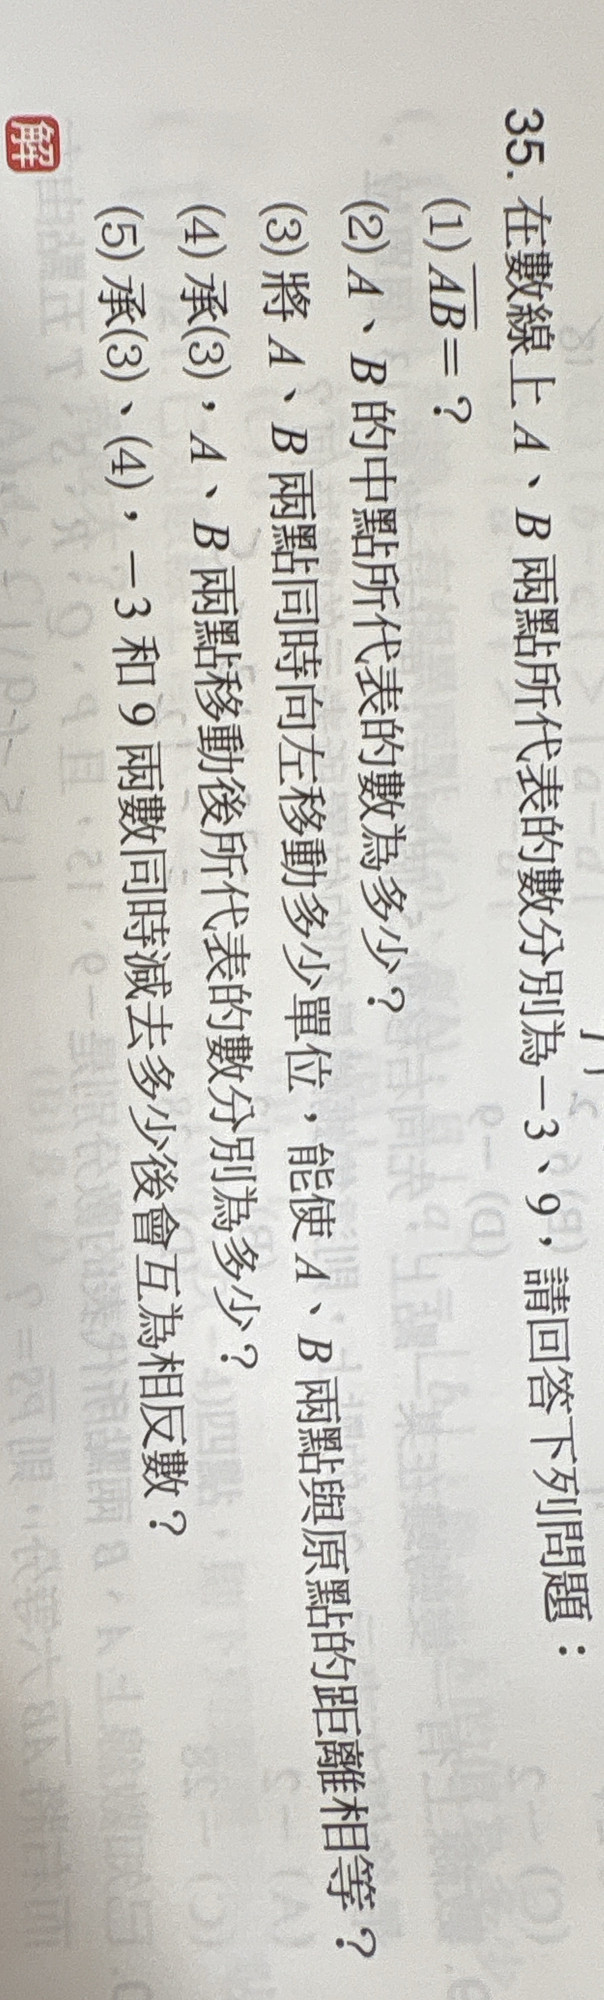 35. 在數線上 A、B 兩點所代表的數分別為－3、9，請回答下列問題：
(1) AB＝？
(2) A、B 的中點所代表的數為多少？
(3) 將 A、B 兩點同時向左移動多少單位，能使 A、B 兩點與原點的距離相等？
(4) 承(3)，A、B 兩點移動後所代表的數分別為多少？
(5) 承(3)、(4)，－3 和 9 兩數同時減去多少後會互為相反數？
解